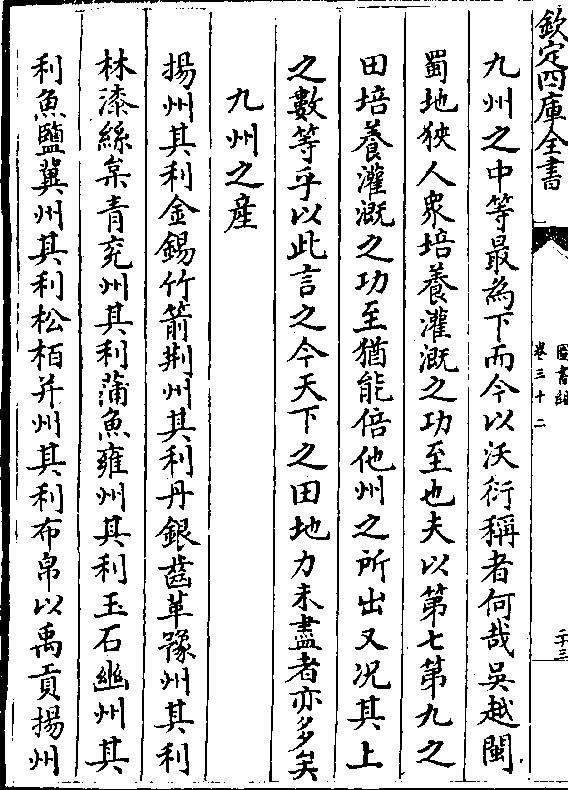 欽定四庫全書
圖書編
卷三十二
二十三
九州之中等最為下而今以沃衍稱者何哉吳越閩
蜀地狹人衆培養灌溉之功至也夫以第七第九之
田培養灌溉之功至猶能倍他州之所出又况其上
之數等乎以此言之今天下之田地力未盡者亦多矣
九州之產
揚州其利金錫竹箭荆州其利丹銀齒革豫州其利
林漆絲枲青兖州其利蒲魚雍州其利玉石幽州其
利魚鹽冀州其利松栢并州其利布帛以禹貢揚州